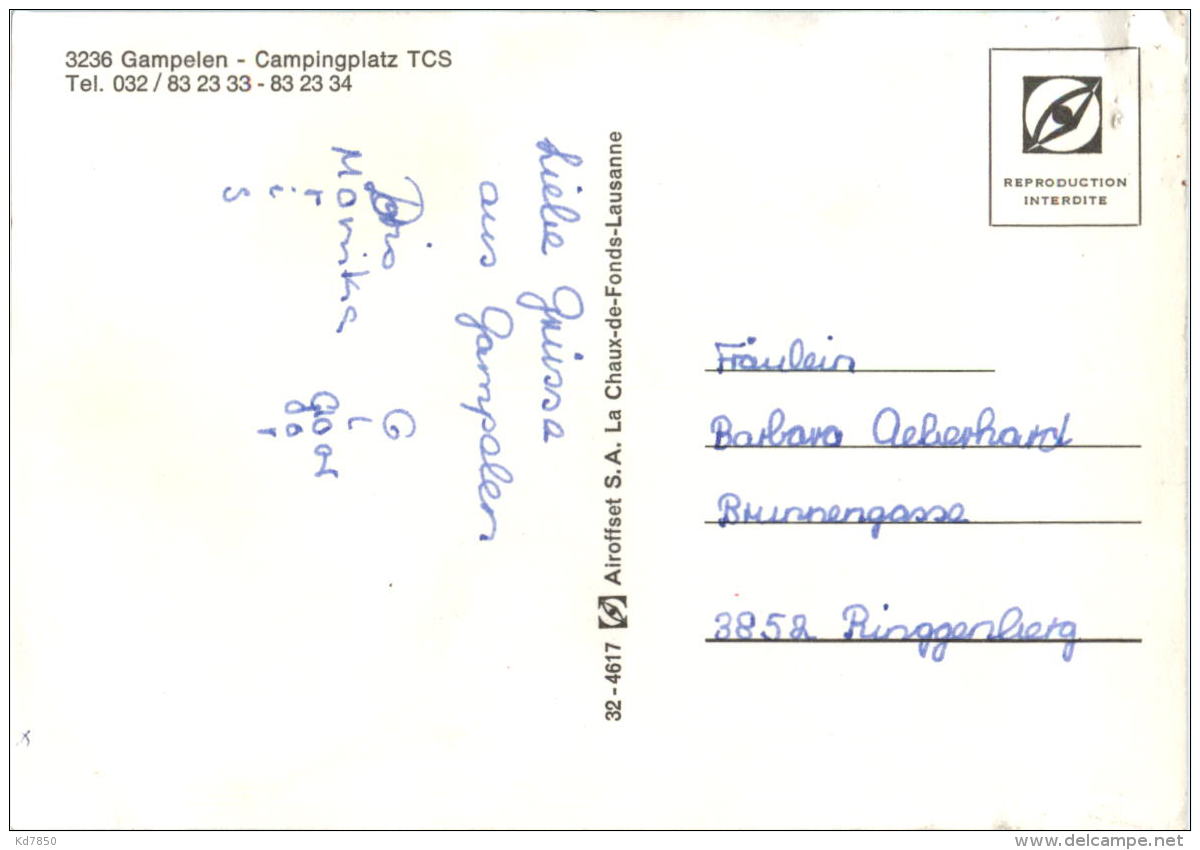 3236 Gampelen - Campingplatz TCS
Tel. 032 / 83 23 33 - 83 23 34
Liebe Grüsse
aus Gampelen
Monika
32-4617 Airoffset S.A. La Chaux-de-Fonds-Lausanne
REPRODUCTION
INTERDITE
Fräulein
Barbara Aeberhard
Brunnengasse
3852 Ringgenberg
Kd7850
delcampe.net